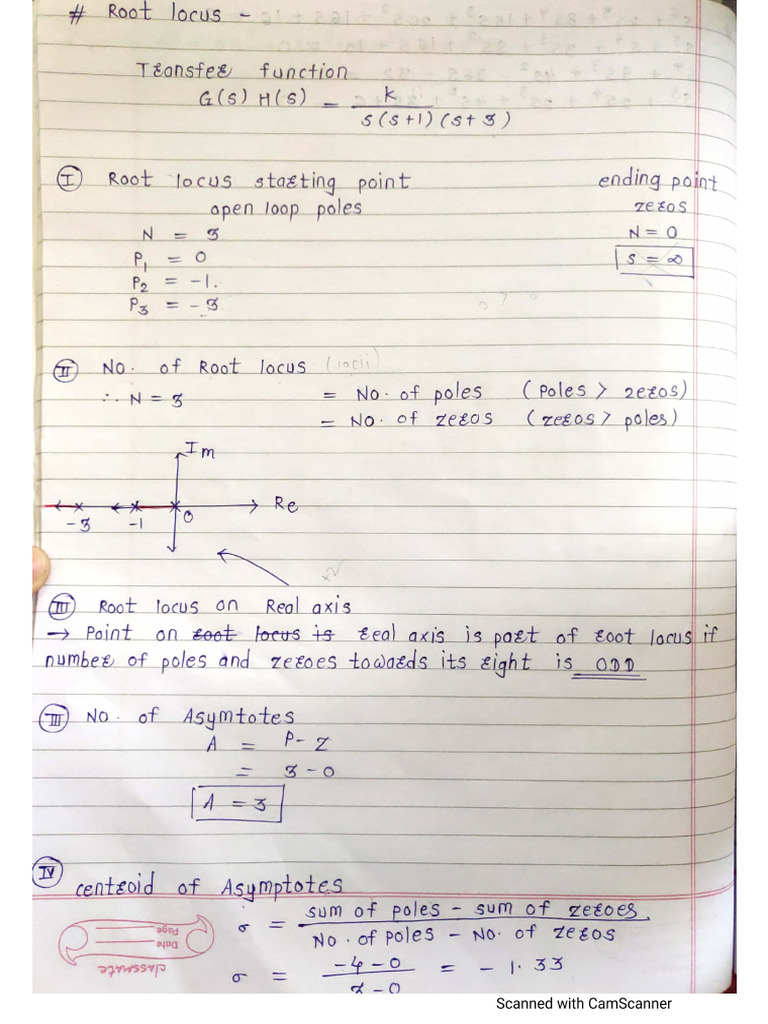 # Root locus -
Transfer function
G(s) H(s) = K / s(s+1)(s+3)
I Root locus starting point ending point
open loop poles zeros
N = 3 N = 0
P1 = 0 s = ∞
P2 = -1.
P3 = -3
II No. of Root locus (locii)
∴ N = 3 = No. of poles (Poles > zeros)
= No. of zeros (zeros > poles)
Im
Re
-3 -1 0
III Root locus on Real axis
→ Point on root locus is real axis is part of root locus if
number of poles and zeroes towards its right is ODD
III No. of Asymtotes
A = P - Z
= 3 - 0
A = 3
IV centroid of Asymptotes
σ = sum of poles - sum of zeroes / No. of poles - No. of zeros
σ = -4 - 0 / 3 - 0 = - 1.33
classmate
Date
Page
Scanned with CamScanner